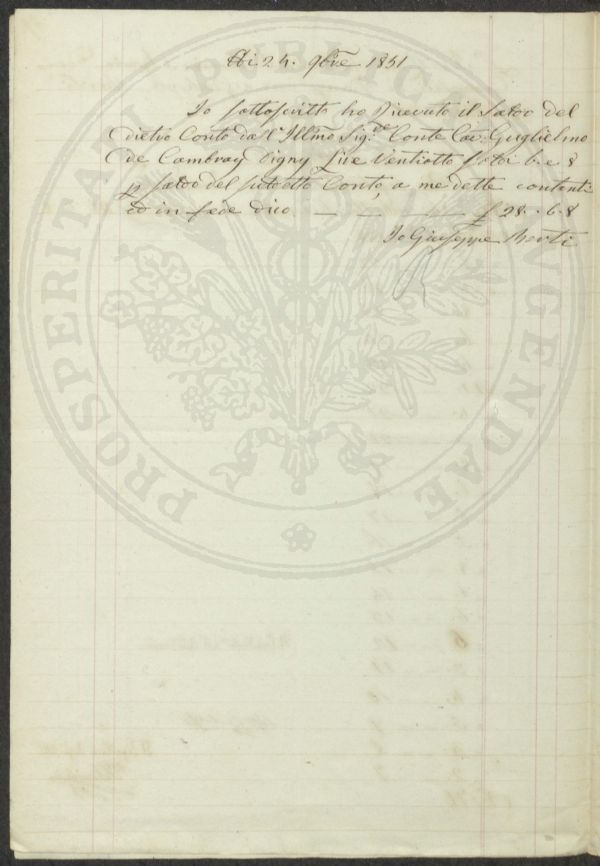 Adi 24. 9bre 1851
Io sottoscritto ho Ricevuto il Saldo del
dietro Conto da l'Illmo Sigre Conte Cav: Guglielmo
de Cambray Digny Lire Ventiotto Soldi 6. e 8
p Saldo del sudetto Conto, a me dette contanti
ed in fede dico — — — £ 28. 6. 8
Io Giuseppe
PROSPERITATI PUBLICAE AUGENDAE